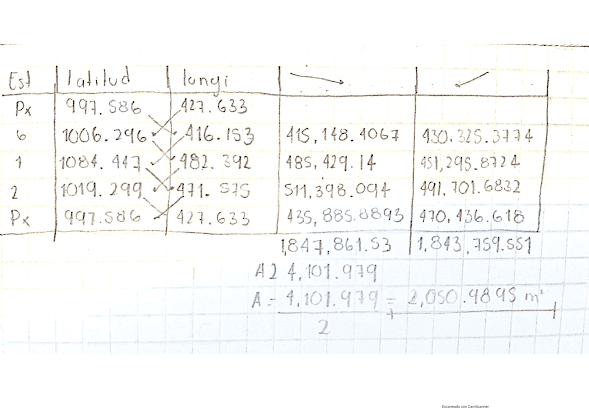 Est latitud longi
Px 997.586 427.633
6 1006.296 416.153 415,148.4067 430.325.3774
1 1084.447 482.392 485,429.14 451,295.8724
2 1019.299 471.575 511,398.094 491.701.6832
Px 997.586 427.633 435,885.8893 470,436.618
1,847,861.53 1,843,759.551
A2 4,101.979
A = 4,101.979 = 2,050.9895 m²
2
Escaneado con CamScanner